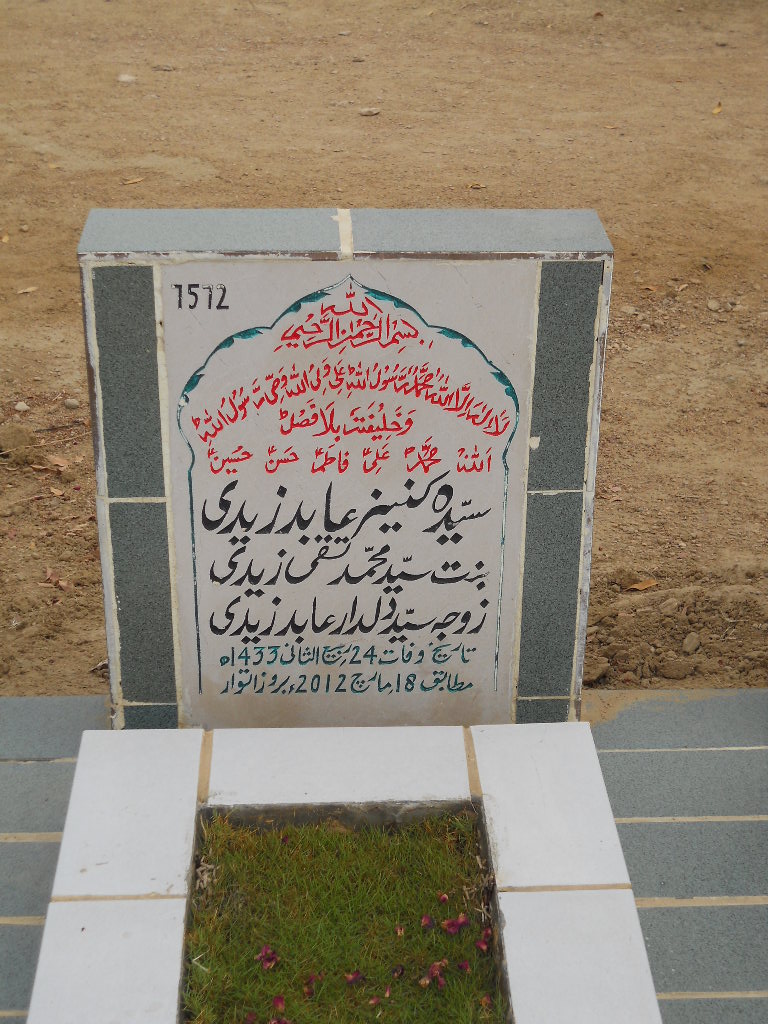 1512
بسم اللہ الرحمٰن الرحیم
لَا اِلٰہَ اِلَّا اللہُ مُحَمَّدٌ رَّسُوْلُ اللہِ عَلِیٌّ وَلِیُّ اللہِ وَصِیُّ رَسُوْلِ اللہِ
وَخَلِیْفَتُہٗ بِلَا فَصْلٍ
اَللہُ مُحَمَّدؐ عَلِیؑ فَاطِمَہؑ حَسَنؑ حُسَیْنؑ
سیّدہ کنیز عابد زیدی
بنت سیّد محمّد تقی زیدی
زوجہ سیّد دلدار عابد زیدی
تاریخ وفات 24 ربیع الثانی 1433ھ
مطابق 18 مارچ 2012ء بروز اتوار